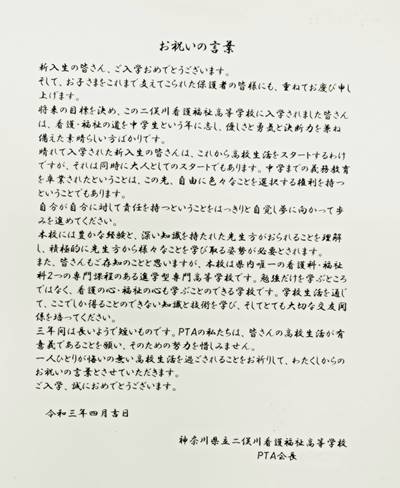 お祝いの言葉
新入生の皆さん、ご入学おめでとうございます。
そして、お子さまをこれまで支えてこられた保護者の皆様にも、重ねてお慶び申し
上げます。
将来の目標を決め、この二俣川看護福祉高等学校に入学されました皆さん
は、看護・福祉の道を中学生という年に志し、優しさと勇気と決断力を兼ね
備えた素晴らしい方ばかりです。
晴れて入学された新入生の皆さんは、これから高校生活をスタートするわけ
ですが、それは同時に大人としてのスタートでもあります。中学までの義務教育
を卒業されたということは、この先、自由に色々なことを選択する権利を持つ
ということでもあります。
自分が自分に対して責任を持つということをはっきりと自覚し夢に向かって歩
みを進めてください。
本校には豊かな経験と、深い知識を持たれた先生方がおられることを理解
し、積極的に先生方から様々なことを学び取る姿勢が必要とされます。
また、皆さんもご存知のことと思いますが、本校は県内唯一の看護科・福祉
科2つの専門課程のある進学型専門高等学校です。勉強だけを学ぶところ
ではなく、看護の心・福祉の心も学ぶことのできる学校です。学校生活を通じ
て、ここでしか得ることのできない知識と技術を学び、そしてとても大切な交友関
係を培ってください。
三年間は長いようで短いものです。PTAの私たちは、皆さんの高校生活が有
意義であることを願い、そのための努力を惜しみません。
一人ひとりが悔いの無い高校生活を過ごされることをお祈りして、わたくしからの
お祝いの言葉とさせていただきます。
ご入学、誠におめでとうございます。
令和三年四月吉日
神奈川県立二俣川看護福祉高等学校
PTA会長